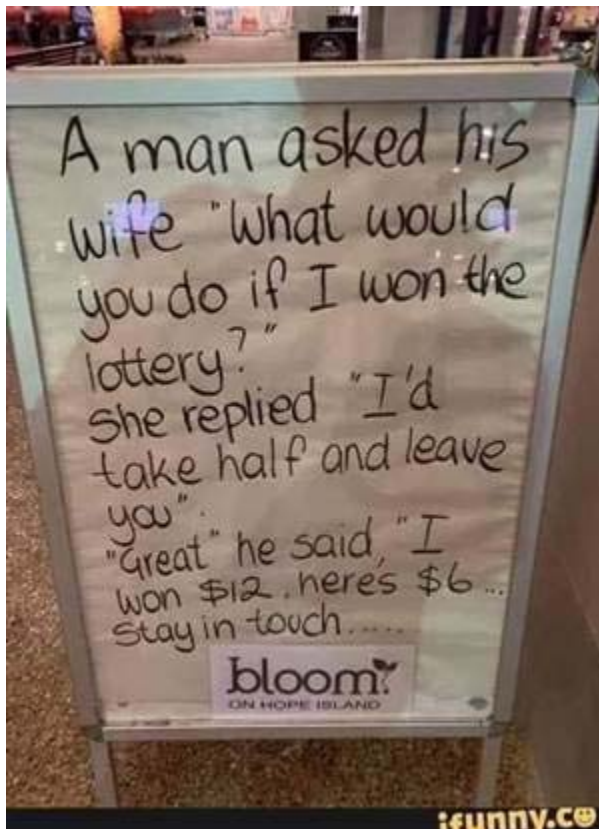 A man asked his
wife "What would
you do if I won the
lottery?"
She replied "I'd
take half and leave
you".
"Great" he said, "I
won $12. heres $6...
Stay in touch.....
bloom
ON HOPE ISLAND
ifunny.co